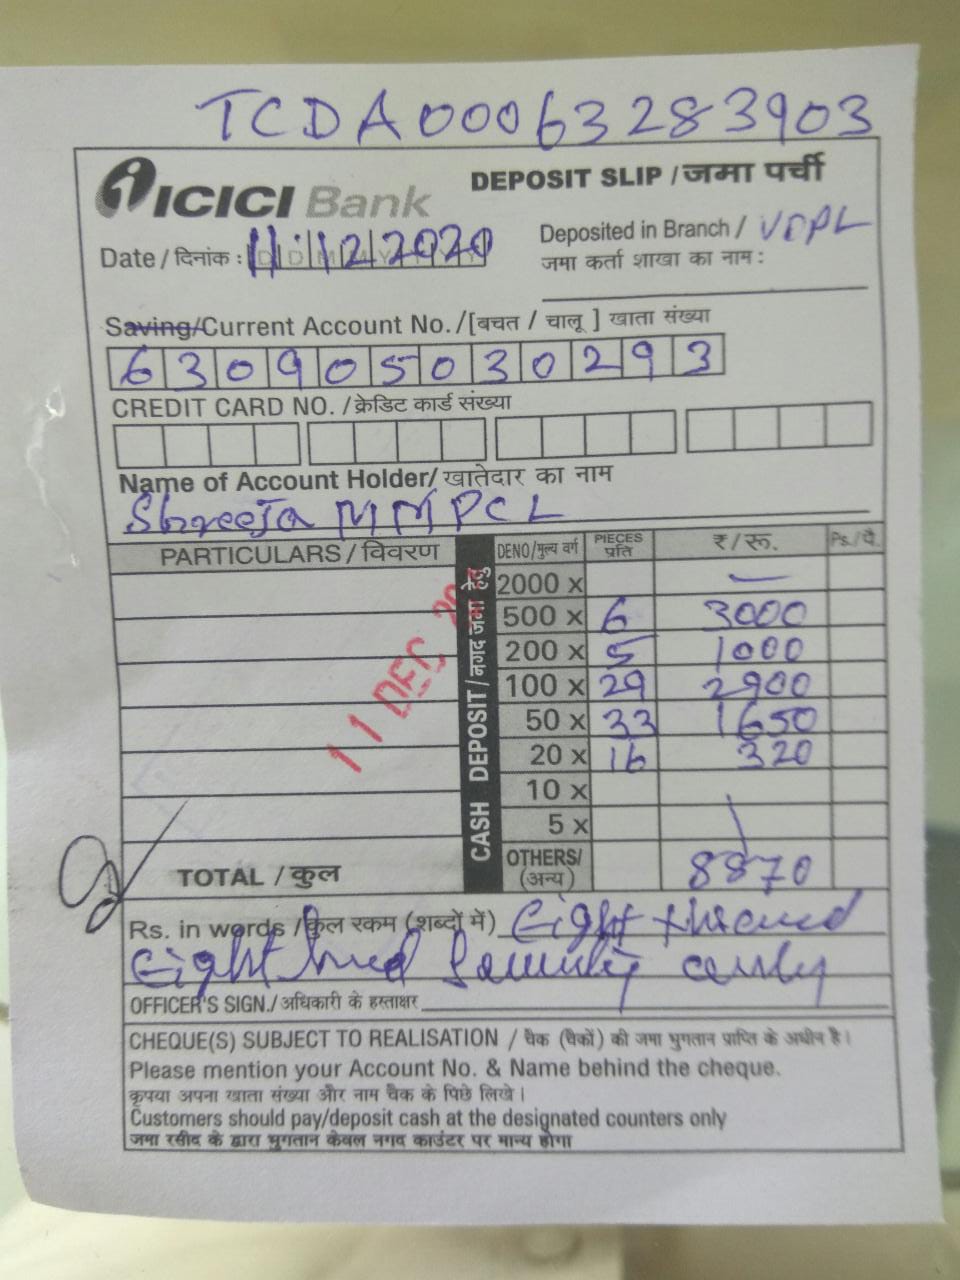 TCDA00063283903
ICICI Bank DEPOSIT SLIP / जमा पर्ची
Date / दिनांक : 11 12 2020 Deposited in Branch / VDPL
जमा कर्ता शाखा का नाम :
Saving/Current Account No. /[बचत / चालू ] खाता संख्या
630905030293
CREDIT CARD NO. / क्रेडिट कार्ड संख्या
Name of Account Holder/ खातेदार का नाम
Shreeja MMPCL
PARTICULARS / विवरण DENO/मूल्य वर्ग PIECES प्रति ₹/रू. Ps./पै.
CASH DEPOSIT / नगद जमा हेतु
2000 x —
500 x 6 3000
200 x 5 1000
100 x 29 2900
50 x 33 1650
20 x 16 320
10 x
5 x
11 DEC 20
TOTAL / कुल OTHERS/ (अन्य) 8870
Rs. in words / कुल रकम (शब्दों में) Eight
Eight
OFFICER'S SIGN./ अधिकारी के हस्ताक्षर
CHEQUE(S) SUBJECT TO REALISATION / चैक (चैकों) की जमा भुगतान प्राप्ति के अधीन है।
Please mention your Account No. & Name behind the cheque.
कृपया अपना खाता संख्या और नाम चैक के पिछे लिखे।
Customers should pay/deposit cash at the designated counters only
जमा रसीद के द्वारा भुगतान केवल नगद काउंटर पर मान्य होगा